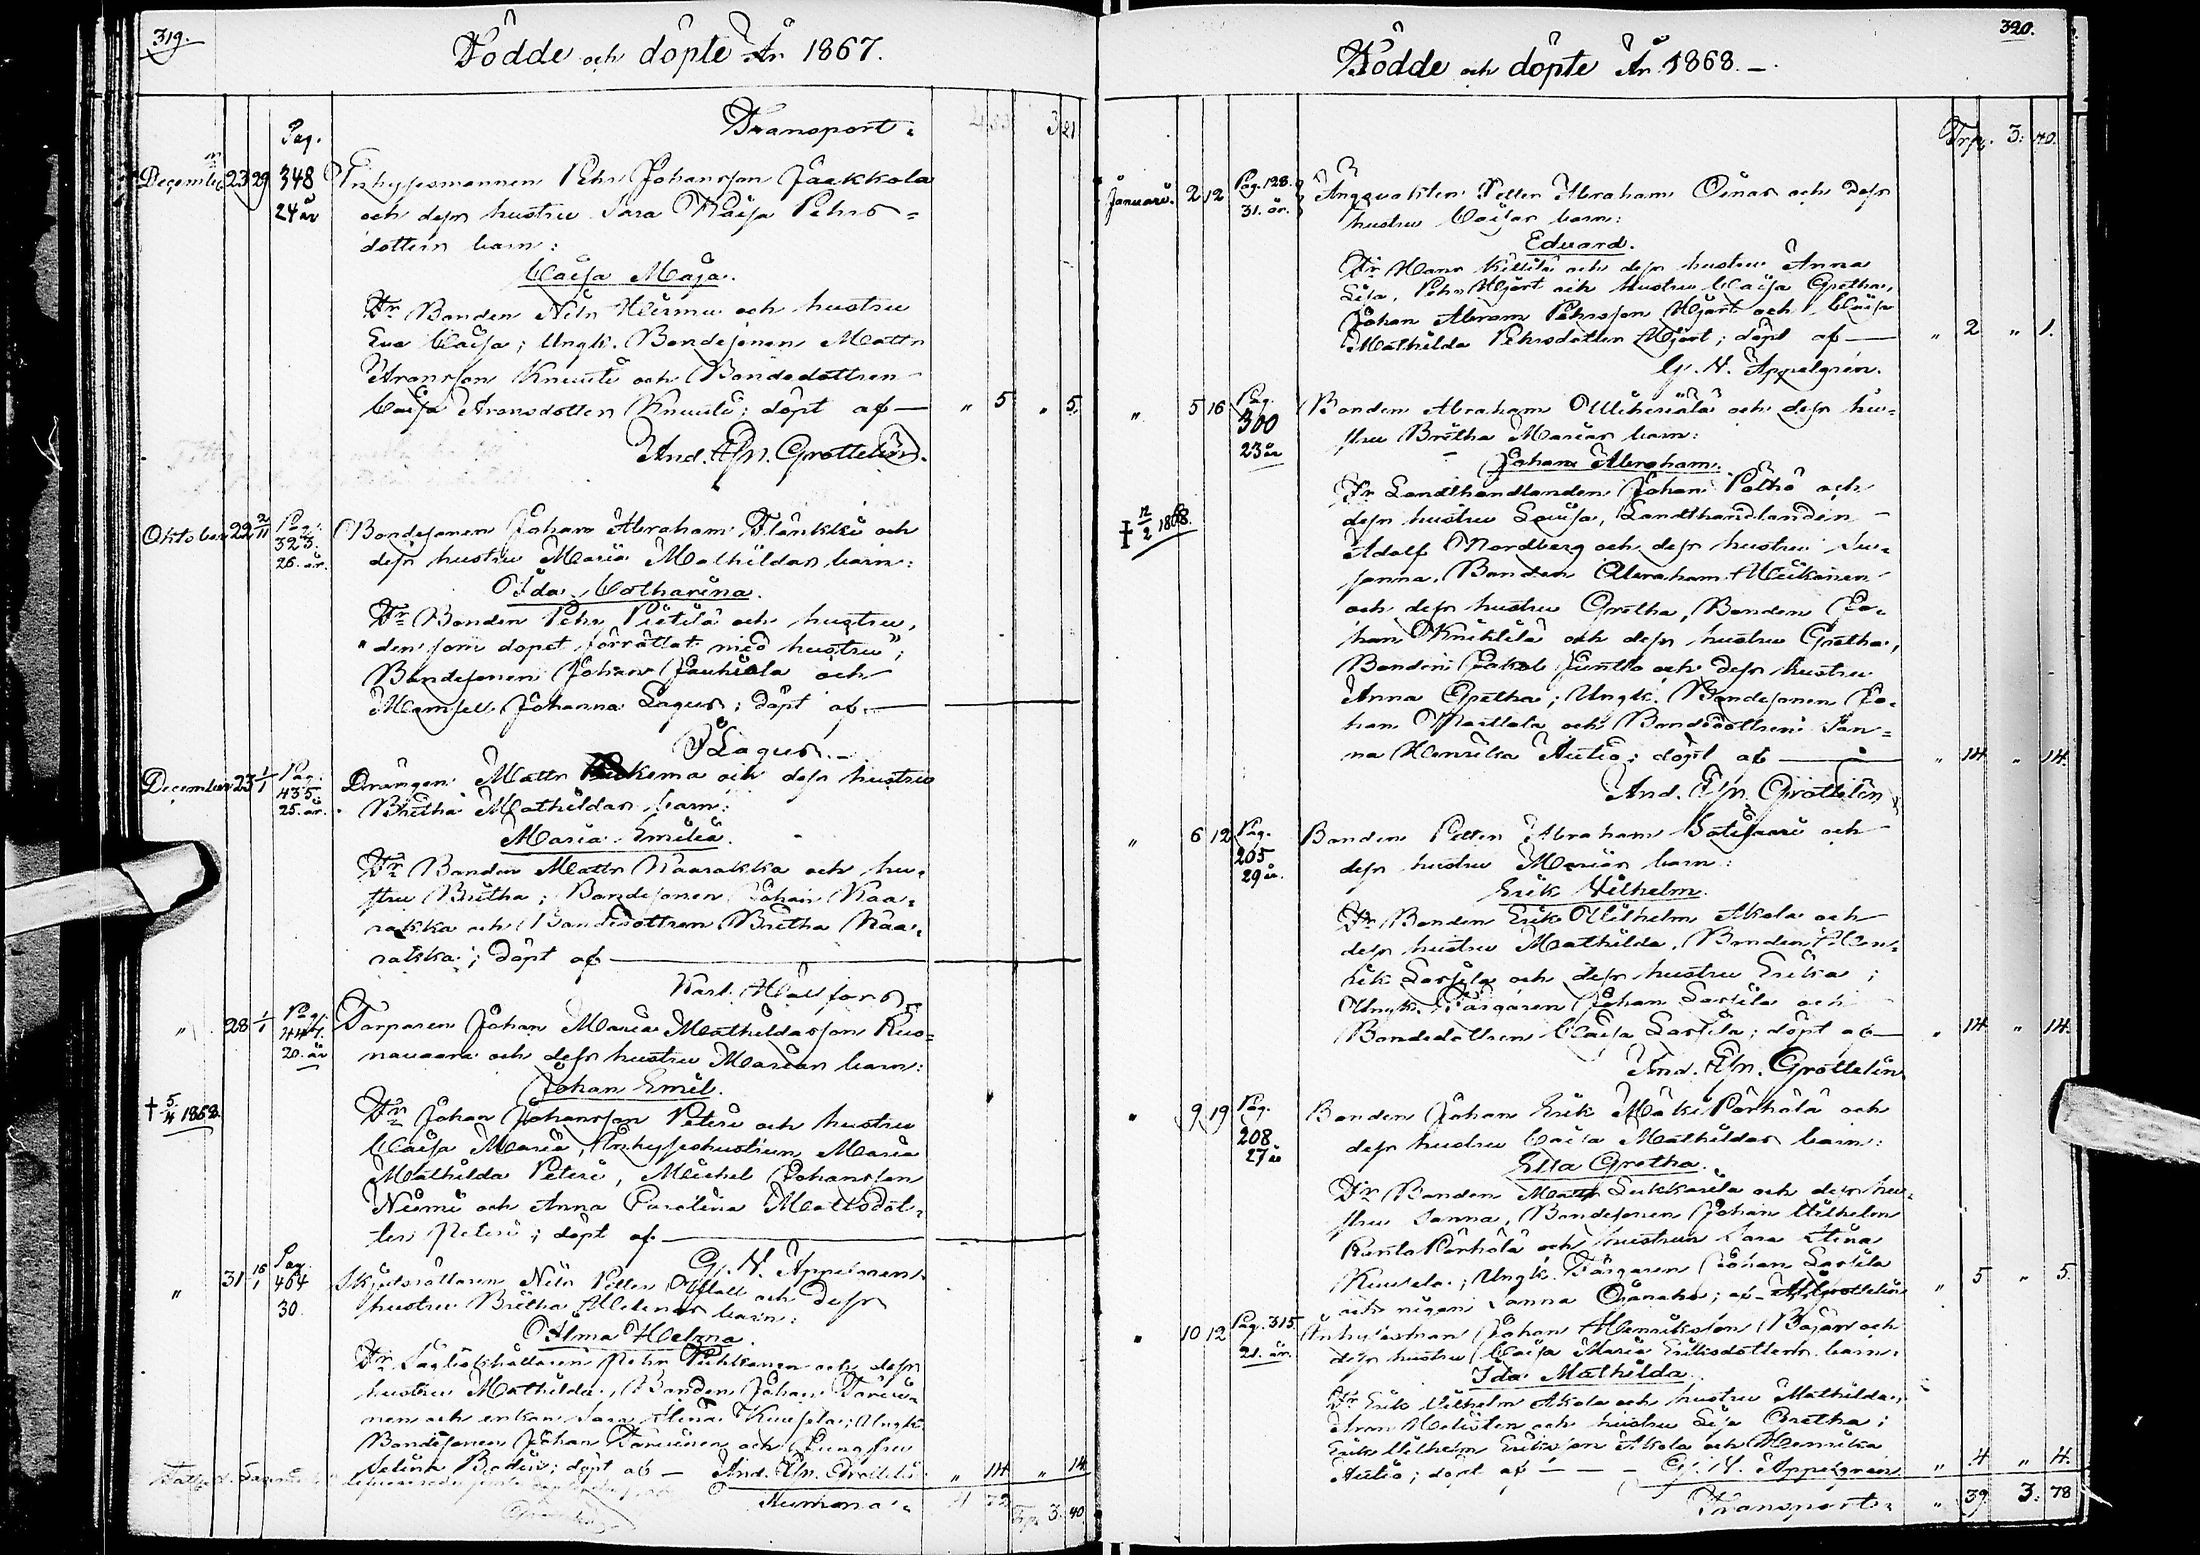 319.
Födde och döpte År 1867.
Transport:
3 21
Pag.
December 23 29 348 Inhysesmannen Pehr Johansson Jaakkola
24 år och dess hustru Sara Kaisa Pehrs=
dotters barn:
Caisa Maja.
Fr Bonden Nils Hirmu och hustru
Eva Caisa; Ungk. Bondesonen Matts
Aronsson Knuuti och Bondedottren
Caisa Aronsdotter Knuuti; döpt af — " 5 " 5.
And. Joh. Grottelin.
Oktober 22 2/11 Pag. 323. Bondesonen Johan Abraham Flankki och
26. år. dess hustru Maria Mathildas barn:
Ida Catharina.
Fr Bonden Pehr Pietilä och hustru,
"den som dopet förrättat med hustru";
Bondesonen Johan Jauhiola och
Mamsell Johanna Lagus; döpt af —
Lagus.
December 23 1/1 Pag. 435 Drängen Matts kema och dess hustru
25. år. Britha Mathildas barn:
Maria Emilia.
Fr Bonden Matts Kaarakka och hu=
stru Britha; Bondesonen Johan Kaa=
rakka och Bondedottren Britha Kaa=
rakka; döpt af —
Karl Hällfors
" 28 1/1 Pag. 447. Torparen Johan Maria Mathildasson Kuo=
20. år navaara och dess hustru Marias barn:
Johan Emil.
† 5/4 1868. Fr Johan Johansson Peteri och hustru
Caisa Maria, Inhyseshustrun Maria
Mathilda Peteri, Michel Johansson
Niemi och Anna Carolina Mattsdot=
ter Peteri; döpt af —
G. N. Appelgren.
" 31 15/1 Pag. 464 Skjutsrättaren Nils Petter och dess
30. hustru Britha Helenas barn:
Alma Helena.
Fr. Pehr Pihkanen och dess
hustru Mathilda, Bonden Johan Tervo=
nen och enkan Sara Stina Kuusela; Ungk.
Bondesonen Johan Karvonen och Jungfru
Selina Bodin; döpt af — And. Joh. Grottelin. " 14 " 14
Summa: 4 72 Trp. 3. 40.
320.
Födde och döpte År 1868. —
Trp. 3: 40.
Januari. 2 12 Pag. 128. Ängvakten Petter Abraham Oinas och dess
31. år. hustru Caisas barn:
Edvard.
Fr Hans Kittilä och dess hustru Anna
Lisa, Pehr Hjort och hustru Caisa Gretha,
Johan Abram Pehrsson Hjort och Caisa
Mathilda Pehrsdotter Hjort; döpt af — " 2 " 1.
G. N. Appelgren.
" 5 16 Pag. 300 Bonden Abraham Yliheriälä och dess hu=
23 år stru Britha Marias barn:
Johan Abraham.
Fr Landthandlanden Johan Pathö och
† 12/2 1868. dess hustru Lovisa, Landthandlanden
Adolf Nordberg och dess hustru Su=
sanna, Bonden Abraham Heikkinen
och dess hustru Gretha, Bonden Jo=
han Knihtilä och dess hustru Gretha,
Bonden Jakob Juntto och dess hustru
Anna Gretha; Ungk. Bondesonen Jo=
han Mattala och Bondedottren San=
na Henrika Autio; döpt af — " 14 " 14.
And. Joh. Grottelin
" 6 12 Pag. 205 Bonden Petter Abraham Kotisaari och
29 år. dess hustru Marias barn:
Erik Vilhelm.
Fr Bonden Erik Wilhelm Akola och
dess hustru Mathilda, Bonden Hen=
rik Lassila och dess hustru Erika;
Ungk. Färgaren Johan Lassila och
Bondedottren Caisa Lassila; döpt af — " 14 " 14.
And. Joh. Grottelin
" 9 19 Pag. 208 Bonden Johan Erik Mäki Pörhölä och
27 år dess hustru Caisa Mathildas barn:
Elsa Gretha.
Fr Bonden Matts Sukkarila och dess hu=
stru Sanna, Bondesonen Johan Wilhelm
Ranta Pörhölä och hustrun Sara Stina
Kuusela; Ungk. Färgaren Johan Lassila
och pigan Sanna Ojanaho; af A. J. Grottelin " 5 " 5.
" 10 12 Pag. 315 Inhysesman Johan Henriksson Bojan och
21. år. dess hustru Caisa Maria Eriksdotters barn:
Ida Mathilda.
Fr Erik Vilhelm Akola och hustru Mathilda,
Aron Helisten och hustru Lisa Gretha;
Erik Vilhelm Eriksson Akola och Henrika
Autio; döpt af — — — G. N. Appelgren " 4 " 4.
Transport: " 39 3: 78